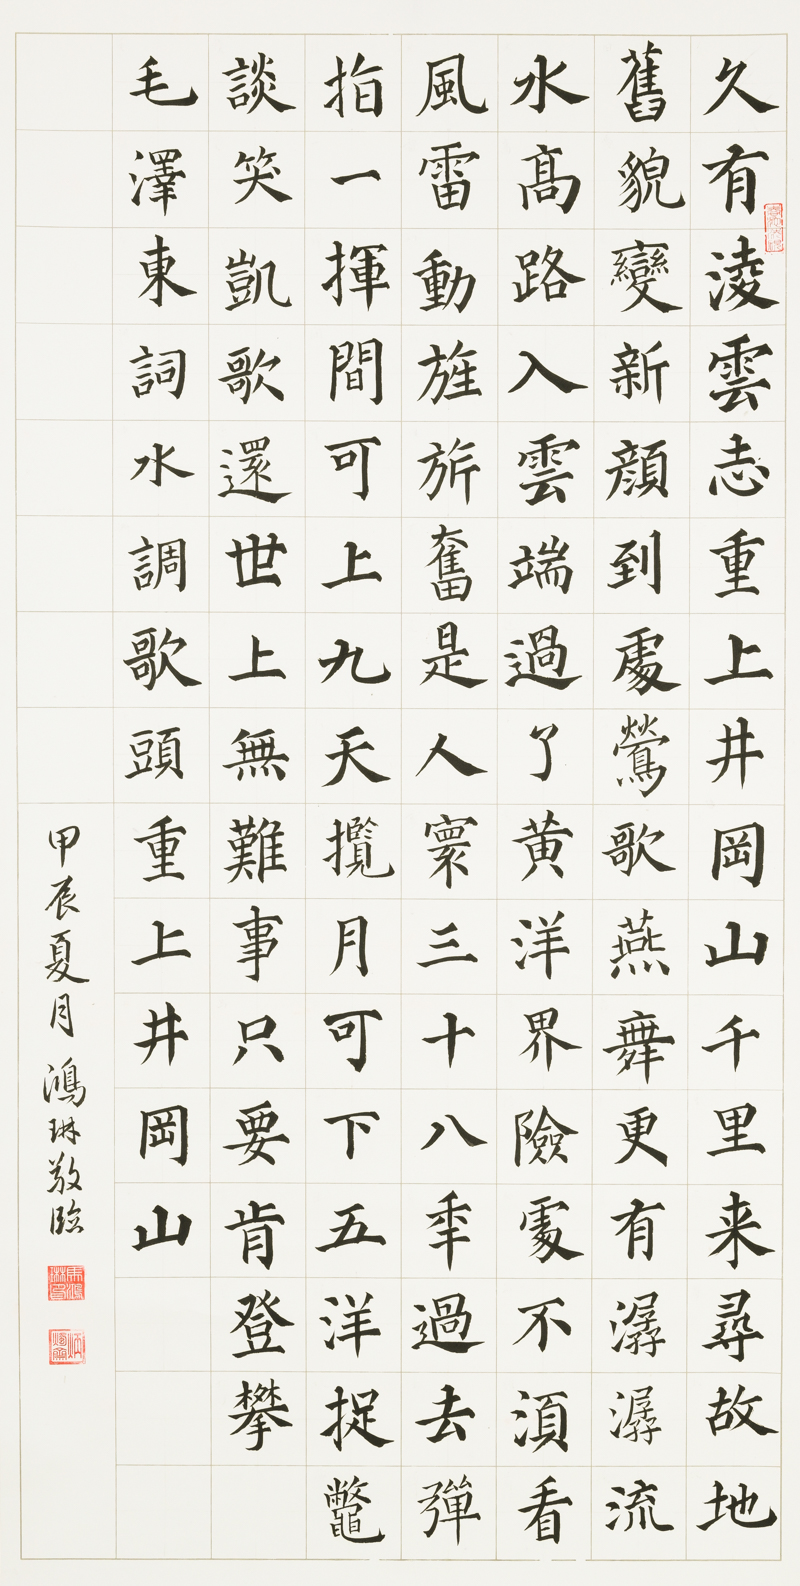 久有淩雲志重上井岡山千里来尋故地
舊貌變新顏到處鶯歌燕舞更有潺潺流
水高路入雲端過了黄洋界險處不須看
風雷動旌旂奮是人寰三十八秊過去彈
指一揮間可上九天攬月可下五洋捉鼈
談笑凱歌還世上無難事只要肯登攀
毛澤東詞水調歌頭重上井岡山
甲辰夏月鴻琳敬臨